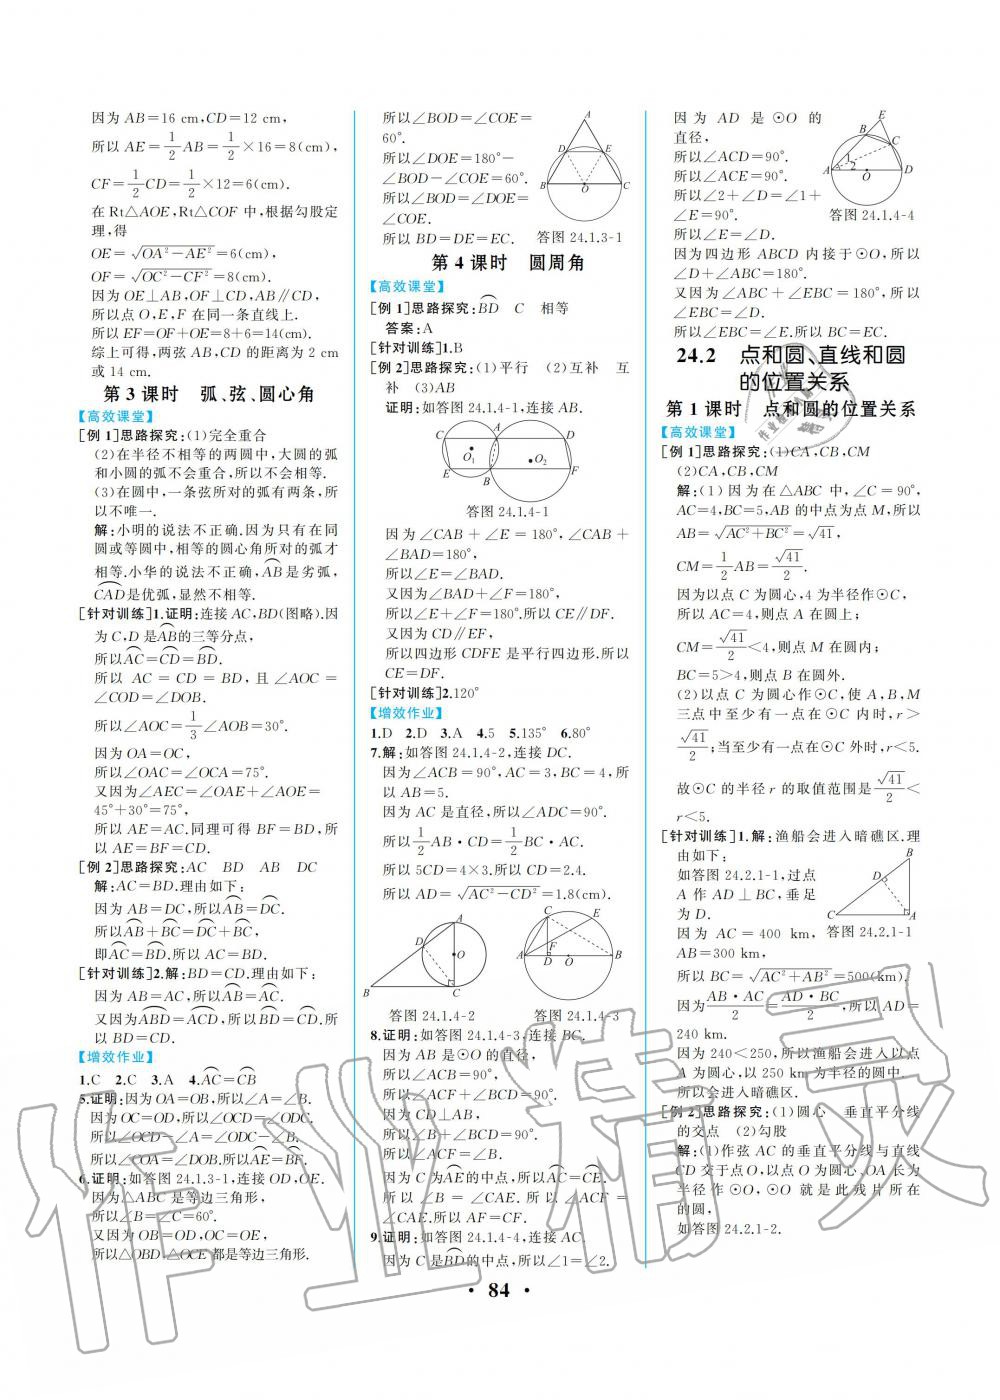 因为 AB=16 cm,CD=12 cm,
所以 AE=1/2AB=1/2×16=8(cm).
CF=1/2CD=1/2×12=6(cm).
在 Rt△AOE,Rt△COF 中,根据勾股定
理,得
OE=√(OA²-AE²)=6(cm),
OF=√(OC²-CF²)=8(cm).
因为 OE⊥AB,OF⊥CD,AB∥CD,
所以点 O,E,F 在同一条直线上.
所以 EF=OF+OE=8+6=14(cm).
综上可得,两弦 AB,CD 的距离为 2 cm
或 14 cm.
第 3 课时 弧、弦、圆心角
【高效课堂】
[例 1]思路探究:(1)完全重合
(2)在半径不相等的两圆中,大圆的弧
和小圆的弧不会重合,所以不会相等.
(3)在圆中,一条弦所对的弧有两条,所
以不唯一.
解:小明的说法不正确.因为只有在同
圆或等圆中,相等的圆心角所对的弧才
相等.小华的说法不正确,AB是劣弧,
CAD是优弧,显然不相等.
[针对训练]1.证明:连接 AC,BD(图略).因
为 C,D 是AB的三等分点,
所以AC=CD=BD.
所以 AC = CD = BD,且∠AOC =
∠COD=∠DOB.
所以∠AOC=1/3∠AOB=30°.
因为 OA=OC,
所以∠OAC=∠OCA=75°.
又因为∠AEC=∠OAE+∠AOE=
45°+30°=75°,
所以 AE=AC.同理可得 BF=BD,所
以 AE=BF=CD.
[例 2]思路探究:AC BD AB DC
解:AC=BD.理由如下:
因为 AB=DC,所以AB=DC.
所以AB+BC=DC+BC,
即AC=BD.所以 AC=BD.
[针对训练]2.解:BD=CD.理由如下:
因为 AB=AC,所以AB=AC.
又因为ABD=ACD,所以BD=CD.所
以 BD=CD.
【增效作业】
1.C 2.C 3.A 4.AC=CB
5.证明:因为 OA=OB,所以∠A=∠B.
因为 OC=OD,所以∠OCD=∠ODC.
所以∠OCD-∠A=∠ODC-∠B.
所以∠COA=∠DOB.所以AE=BF.
6.证明:如答图 24.1.3-1,连接 OD,OE.
因为△ABC 是等边三角形,
所以∠B=∠C=60°.
又因为 OB=OD,OC=OE,
所以△OBD,△OCE 都是等边三角形.
所以∠BOD=∠COE=
60°.
所以∠DOE=180°-
∠BOD-∠COE=60°.
所以∠BOD=∠DOE=
∠COE.
所以 BD=DE=EC.
A
D
E
B
O
C
答图 24.1.3-1
第 4 课时 圆周角
【高效课堂】
[例 1]思路探究:BD C 相等
答案:A
[针对训练]1.B
[例 2]思路探究:(1)平行 (2)互补 互
补 (3)AB
证明:如答图 24.1.4-1,连接 AB.
C
A
D
O₁
O₂
E
B
F
答图 24.1.4-1
因为∠CAB + ∠E = 180°,∠CAB +
∠BAD=180°,
所以∠E=∠BAD.
又因为∠BAD+∠F=180°,
所以∠E+∠F=180°.所以 CE∥DF.
又因为 CD∥EF,
所以四边形 CDFE 是平行四边形.所以
CE=DF.
[针对训练]2.120°
【增效作业】
1.D 2.D 3.A 4.5 5.135° 6.80°
7.解:如答图 24.1.4-2,连接 DC.
因为∠ACB=90°,AC=3,BC=4,所
以 AB=5.
因为 AC 是直径,所以∠ADC=90°.
所以1/2AB·CD=1/2BC·AC.
所以 5CD=4×3.所以 CD=2.4.
所以 AD=√(AC²-CD²)=1.8(cm).
A
D
O
B
C
答图 24.1.4-2
C
E
F
A
D
O
B
答图 24.1.4-3
8.证明:如答图 24.1.4-3,连接 BC.
因为 AB 是⊙O 的直径,
所以∠ACB=90°,
所以∠ACF+∠BCD=90°.
因为 CD⊥AB,
所以∠B+∠BCD=90°.
所以∠ACF=∠B.
因为 C 为AE的中点,所以AC=CE.
所以∠B = ∠CAE.所以∠ACF =
∠CAE.所以 AF=CF.
9.证明:如答图 24.1.4-4,连接 AC.
因为 C 是BD的中点,所以∠1=∠2.
因为 AD 是⊙O 的
直径,
所以∠ACD=90°.
所以∠ACE=90°.
所以∠2+∠D=∠1+
∠E=90°.
所以∠E=∠D.
E
B
C
1
2
A
O
D
答图 24.1.4-4
因为四边形 ABCD 内接于⊙O,所以
∠D+∠ABC=180°.
又因为∠ABC+∠EBC=180°,所以
∠EBC=∠D.
所以∠EBC=∠E.所以 BC=EC.
24.2 点和圆、直线和圆
的位置关系
第 1 课时 点和圆的位置关系
【高效课堂】
[例 1]思路探究:(1)CA,CB,CM
(2)CA,CB,CM
解:(1)因为在△ABC 中,∠C=90°,
AC=4,BC=5,AB 的中点为点 M,所以
AB=√(AC²+BC²)=√41,
CM=1/2AB=√41/2.
因为以点 C 为圆心,4 为半径作⊙C,
所以 AC=4,则点 A 在圆上;
CM=√41/2<4,则点 M 在圆内;
BC=5>4,则点 B 在圆外.
(2)以点 C 为圆心作⊙C,使 A,B,M
三点中至少有一点在⊙C 内时,r>
√41/2;当至少有一点在⊙C 外时,r<5.
故⊙C 的半径 r 的取值范围是√41/2<
r<5.
[针对训练]1.解:渔船会进入暗礁区.理
由如下:
如答图 24.2.1-1,过点
A 作 AD⊥BC,垂足
为 D.
因为 AC=400 km,
AB=300 km,
B
D
C
A
答图 24.2.1-1
所以 BC=√(AC²+AB²)=500(km).
因为AB·AC/2=AD·BC/2,所以 AD=
240 km.
因为 240<250,所以渔船会进入以点
A 为圆心,以 250 km 为半径的圆中.
所以会进入暗礁区.
[例 2]思路探究:(1)圆心 垂直平分线
的交点 (2)勾股
解:(1)作弦 AC 的垂直平分线与直线
CD 交于点 O,以点 O 为圆心、OA 长为
半径作⊙O,⊙O 就是此残片所在
的圆.
如答图 24.2.1-2.
· 84 ·
作业精灵